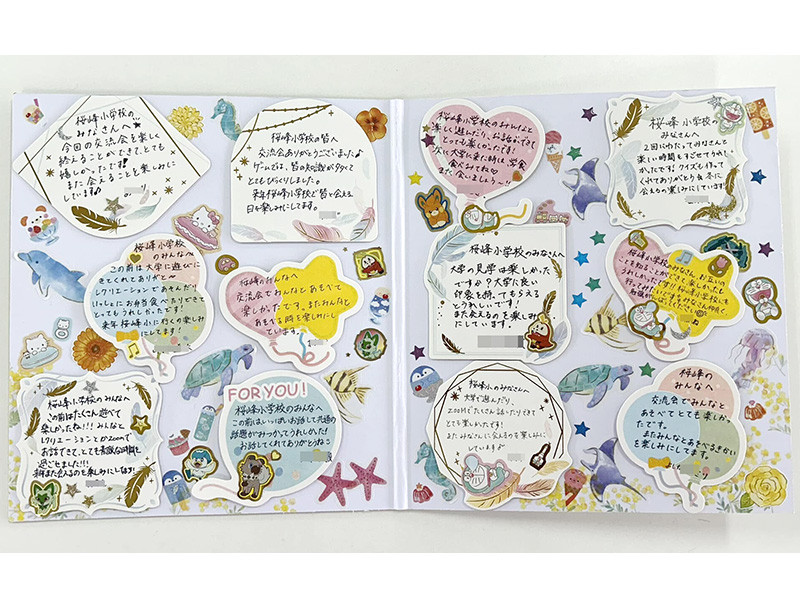 桜峰小学校の
みなさんへ
今回の交流会を楽しく
終えることができて、とても
嬉しかったです!
また会えることを楽しみに
しています♪
桜峰小学校の皆へ
交流会ありがとうございました♪
ゲームでは、皆の知識が多くて
とてもびっくりしました。
来年桜峰小学校で皆と会える
日を楽しみにしてます。
桜峰小学校
のみんなへ
この前は大学に遊びに
きてくれてありがと〜
レクリエーションであそんだり
いっしょにお弁当食べたりできて
とってもうれしかったです!
来年桜峰小に行くの楽しみ
にしてます!
桜峰のみんなへ
交流会でみんなとあそべて
楽しかったです。またみんなと
あそべる時を楽しみにし
ています。
桜峰小学校のみんなへ
この前はたくさん遊べて
楽しかったね!!!みんなと
レクリエーションとかZoomで
お話できて、とっても素敵な時間を
過ごせました!!!
また会えるのも楽しみにしてます!
FOR YOU!
桜峰小学校のみんなへ
この前はいっぱいお話しして共通の
話題がみつかってうれしかった!
お話してくれてありがとうね♪
桜峰小学校のみんなと
楽しく遊んだり、お話ができて
とっても楽しかったです!
大学に来た時は、学食
食べみてね♡
また会いましょう〜!!
桜峰小学校の
みなさんへ
2回にわたってみなさんと
楽しい時間をすごせてうれし
かったです!クイズも作って
くれてありがとう。冬に
会えるの楽しみにしています!
桜峰小学校のみなさんへ
大学の見学は楽しかった
ですか?大学に良い
印象を持ってもらえると
うれしいです!
また会えるのを楽しみ
にしています!
桜峰小学校のみなさん、お互いの
ことを知ることができて楽しかったし
うれしかったです!!桜峰小学校にも
桜峰小のみなさんへ
大学で遊んだり、
zoomでたくさん話したりできて
とても楽しかったです!
またみなさんに会えるのを楽しみに
しています♪
桜峰の
みんなへ
交流会でみんなと
あそべてとても楽しかっ
たです。
またみんなとあそべるきかい
を楽しみにしてます。